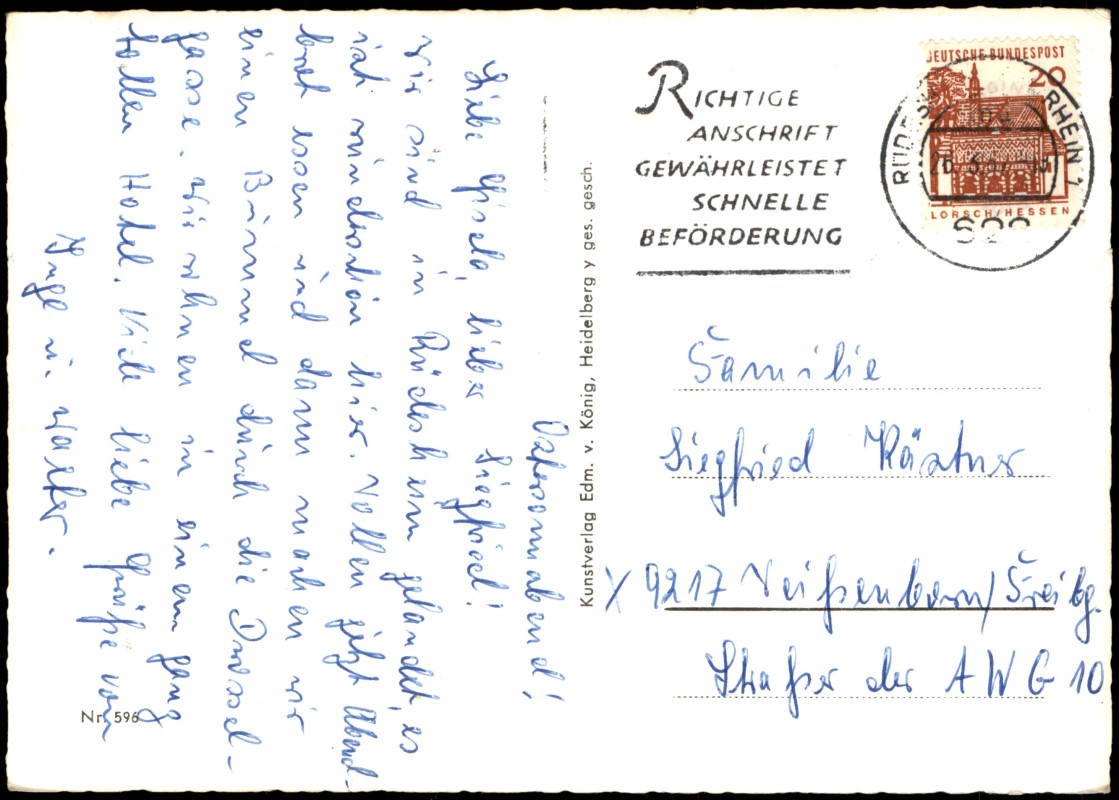 Ostersonnabend!
Liebe Gisela, lieber Siegfried!
Wir sind in Rüdesheim gelandet, es
ist wunderschön hier. Wollen jetzt Abend-
brot essen und dann machen wir
einen Bummel durch die Drossel-
gasse. Wir wohnen in einem ganz
tollen Hotel. Viele liebe Grüße von
Inge u. Walter.
Nr. 596
Kunstverlag Edm. v. König, Heidelberg y ges. gesch.
RICHTIGE
ANSCHRIFT
GEWÄHRLEISTET
SCHNELLE
BEFÖRDERUNG
DEUTSCHE BUNDESPOST
20
LORSCH/HESSEN
RHEIN 1
Familie
Siegfried Kästner
X 9217 Weißenborn/Freibg.
Straße der AWG 10